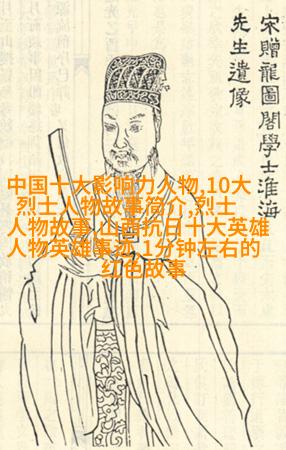 宋贈龍圖閣學士淮海
先生遺像
中国十大影响力人物,10大
烈士人物故事简介,烈士
人物故事,山西抗日十大英雄
人物英雄事迹,1分钟左右的
红色故事